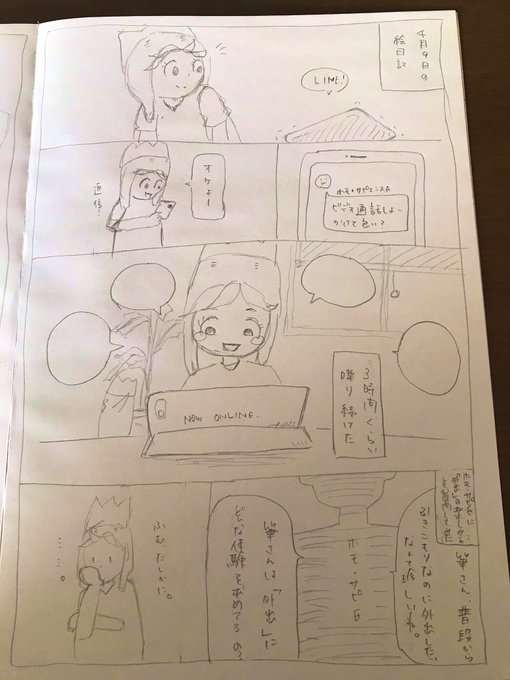 4月9日の
絵日記
LINE!
ホモ・サピエンスさん
ビデオ通話しよー
かけて色いて
オケよー
返信!
3時間くらい
喋り続けた
NOW ONLINE...
筆さん、普段から
引きこもりなのに外出した
なんて珍しいね。
ホモ・サピ氏
筆さんは「外出」に
どんな体験を求めてるの?
ふむたしかに。